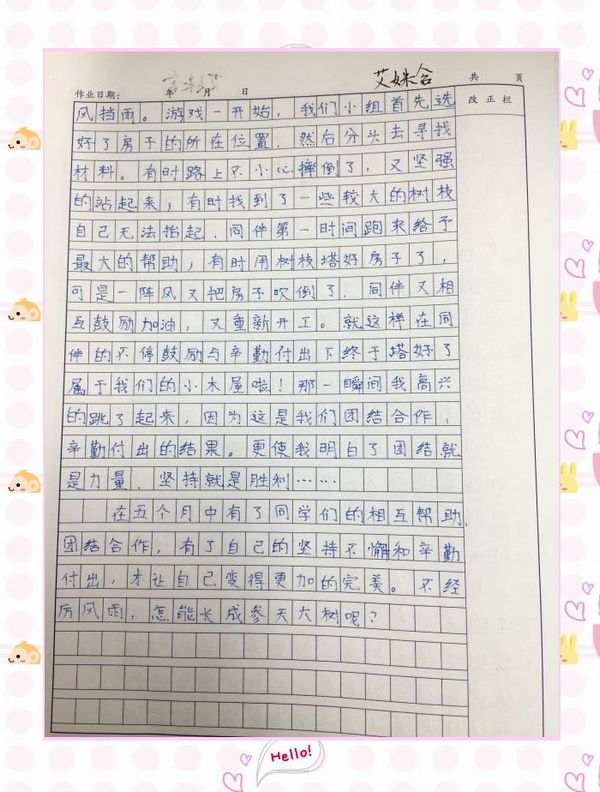 艾妹含
作业日期： 年 月 日 共 页
改正栏
风挡雨。游戏一开始，我们小组首先选
好了房子的所在位置，然后分头去寻找
材料。有时路上不小心摔倒了，又坚强
的站起来，有时找到了一些较大的树枝
自己无法抬起，同伴第一时间跑来给予
最大的帮助，有时用树枝塔好房子了，
可是一阵风又把房子吹倒了，同伴又相
互鼓励加油，又重新开工。就这样在同
伴的不停鼓励与辛勤付出下终于塔好了
属于我们的小木屋啦！那一瞬间我高兴
的跳了起来，因为这是我们团结合作，
辛勤付出的结果。更使我明白了团结就
是力量，坚持就是胜利……
在五个月中有了同学们的相互帮助，
团结合作，有了自己的坚持不懈和辛勤
付出，才让自己变得更加的完美。不经
厉风雨，怎能长成参天大树呢？
Hello!